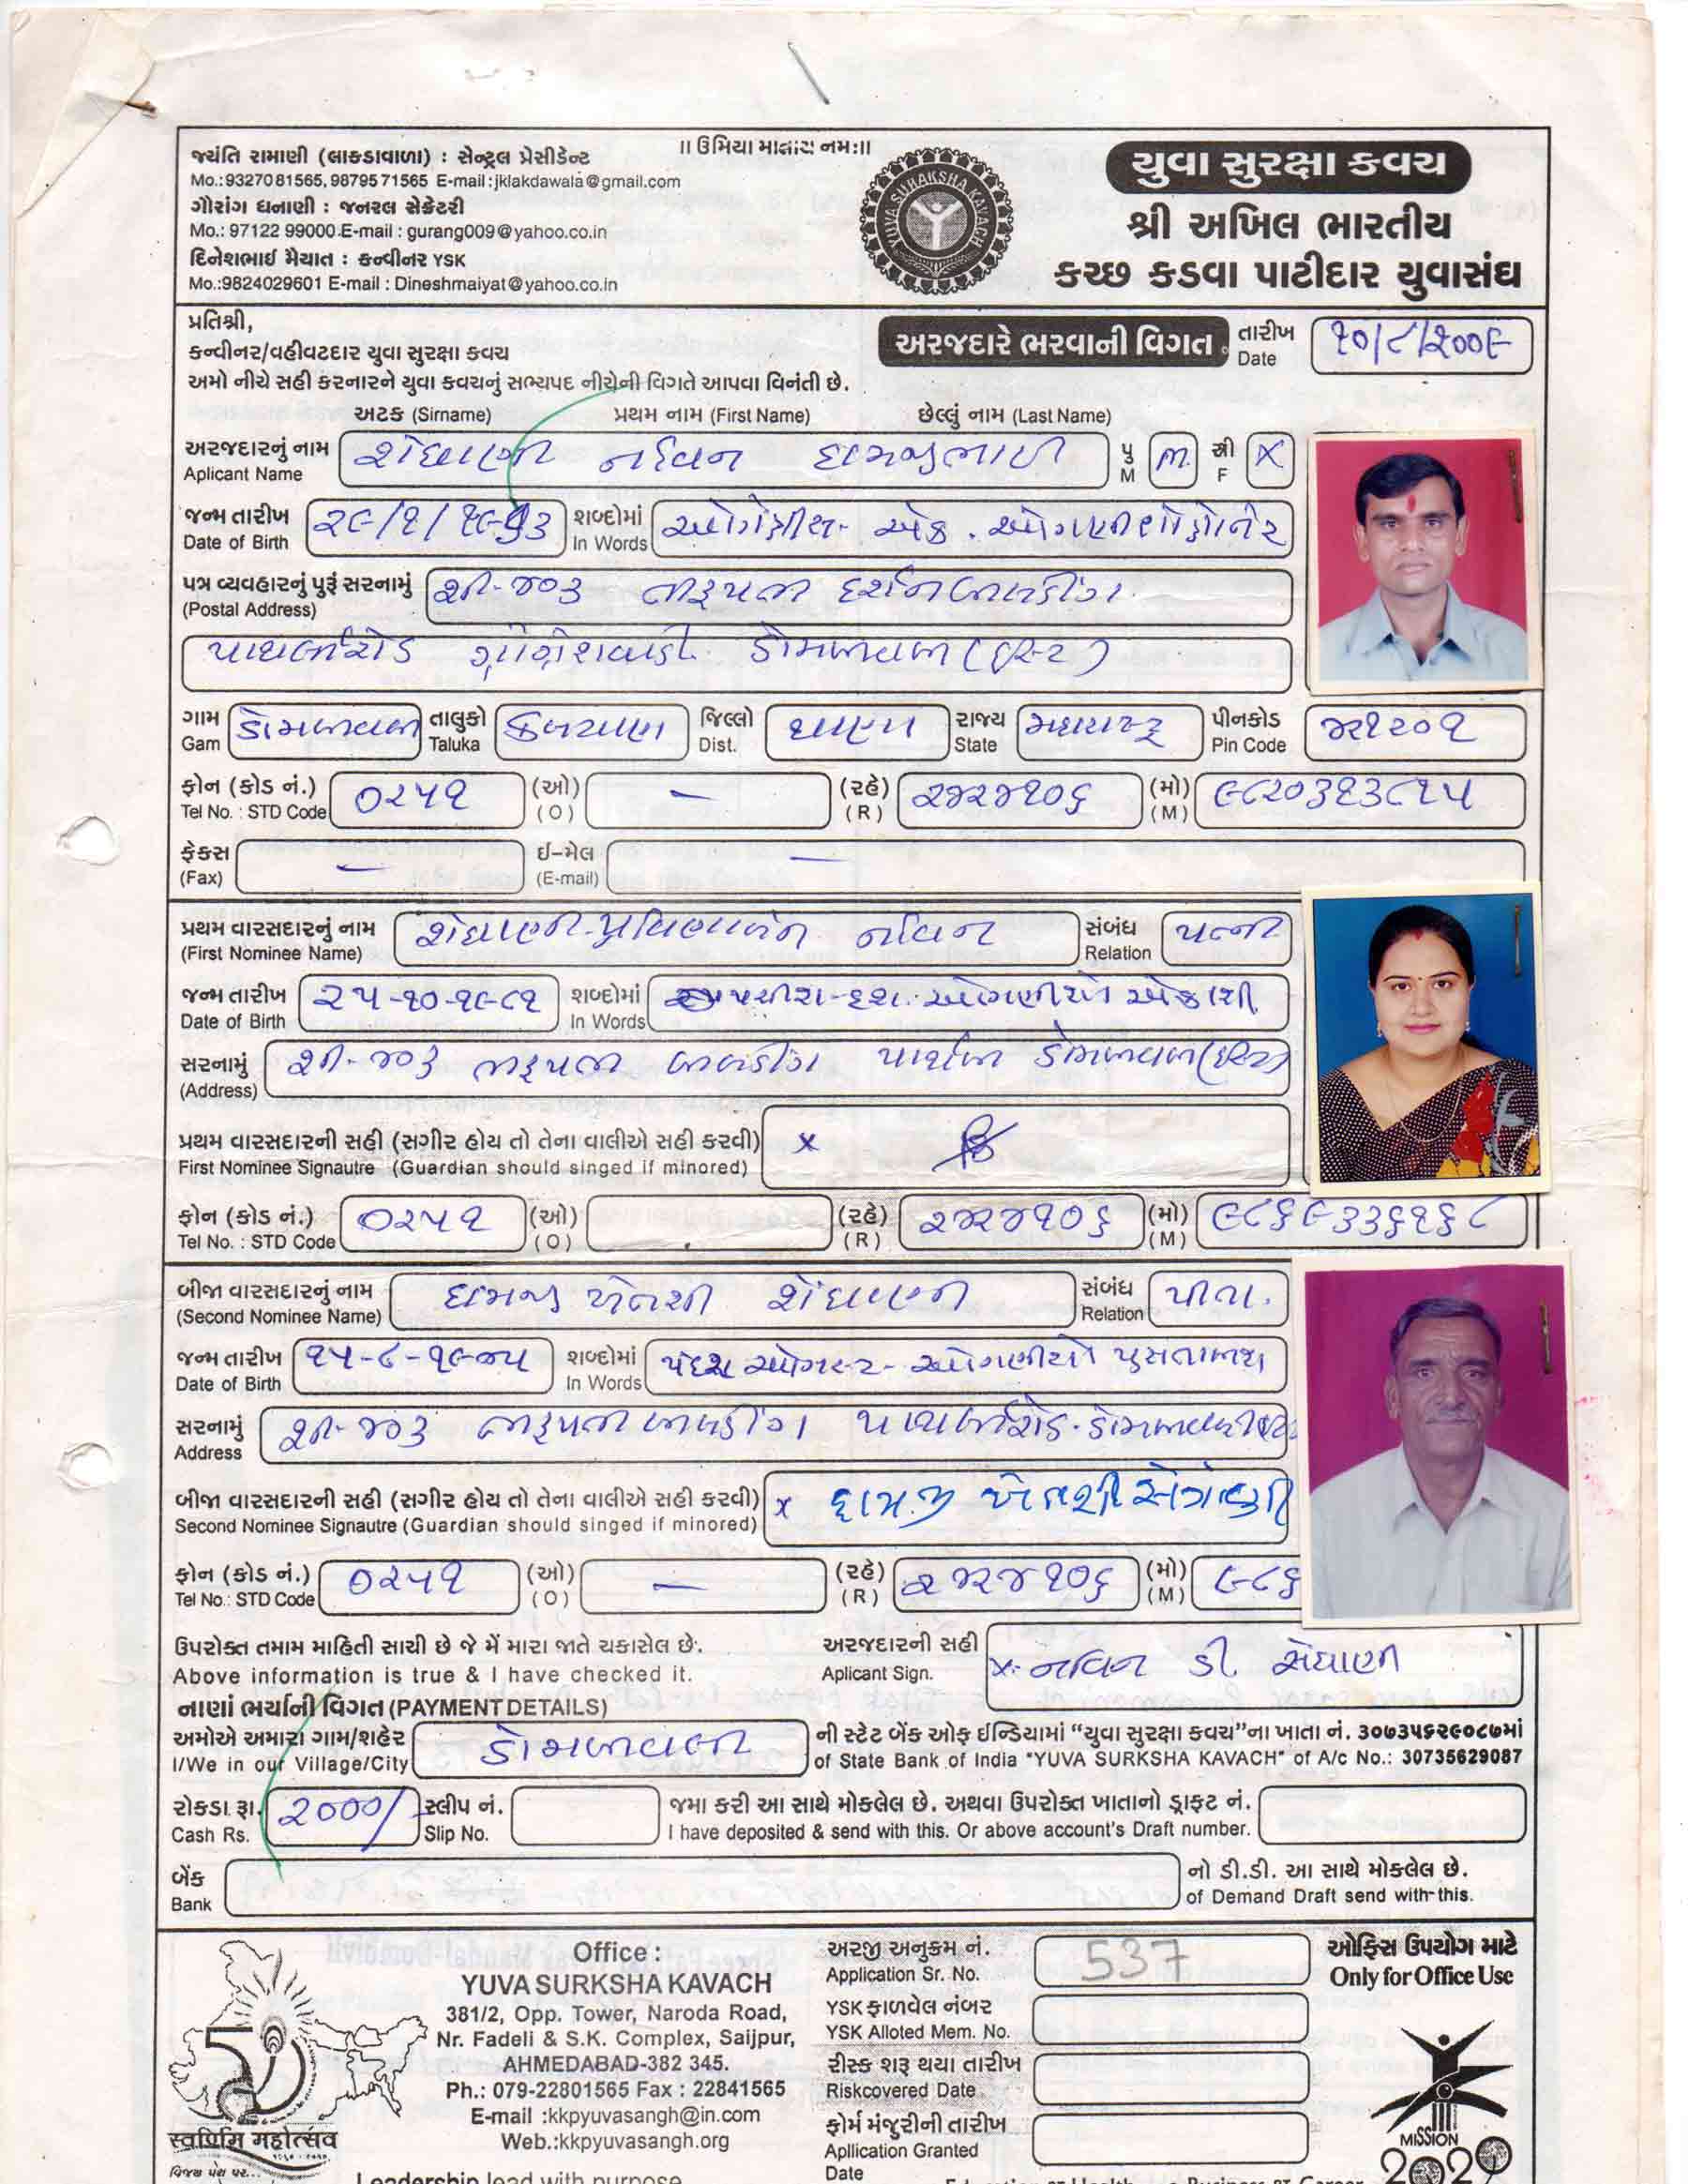 ॥ ઉમિયા માતાય નમઃ॥
જ્યંતિ રામાણી (લાકડાવાળા) : સેન્ટ્રલ પ્રેસીડેન્ટ
Mo.:9327081565, 9879571565 E-mail :jklakdawala@gmail.com
ગૌરાંગ ધનાણી : જનરલ સેક્રેટરી
Mo.: 97122 99000 E-mail : gurang009@yahoo.co.in
દિનેશભાઈ મૈયાત : કન્વીનર YSK
Mo.:9824029601 E-mail : Dineshmaiyat@yahoo.co.in
YUVA SURAKSHA KAVACH
યુવા સુરક્ષા કવચ
શ્રી અખિલ ભારતીય
કચ્છ કડવા પાટીદાર યુવાસંઘ
પ્રતિશ્રી,
કન્વીનર/વહીવટદાર યુવા સુરક્ષા કવચ
અમો નીચે સહી કરનારને યુવા કવચનું સભ્યપદ નીચેની વિગતે આપવા વિનંતી છે.
અરજદારે ભરવાની વિગત
તારીખ Date ૧૦/૮/૨૦૦૯
અટક (Sirname) પ્રથમ નામ (First Name) છેલ્લું નામ (Last Name)
અરજદારનું નામ Aplicant Name શેંઘાણી નવિન ધામજીભાઈ પુ M m. સ્ત્રી F X
જન્મ તારીખ Date of Birth ૨૯/૧/ શબ્દોમાં In Words એક
પત્ર વ્યવહારનું પુરૂં સરનામું (Postal Address) સી-૪૦૩ દર્શન બીલડીંગ
ડોમબીવલી (ઈસ્ટ)
ગામ Gam ડોમબીવલી તાલુકો Taluka કલ્યાણ જિલ્લો Dist. થાણા રાજ્ય State મહારાષ્ટ્ર પીનકોડ Pin Code ૪૨૧૨૦૧
ફોન (કોડ નં.) Tel No. : STD Code ૦૨૫૧ (ઓ) (O) – (રહે) (R) ૨૪૨૪૧૦૬ (મો) (M) ૯૮૨૦૩૧૩૮૧૫
ફેક્સ (Fax) – ઈ-મેલ (E-mail) –
પ્રથમ વારસદારનું નામ (First Nominee Name) શેંઘાણી પ્રવિણાબેન નવિન સંબંધ Relation પત્ની
જન્મ તારીખ Date of Birth ૨૫-૧૦-૧૯૮૧ શબ્દોમાં In Words પચીશ-દશ ઓગણીસો એકાશી
સરનામું (Address) સી-૪૦૩ બીલડીંગ ડોમબીવલી (ઈસ્ટ)
પ્રથમ વારસદારની સહી (સગીર હોય તો તેના વાલીએ સહી કરવી) x
First Nominee Signautre (Guardian should singed if minored)
ફોન (કોડ નં.) Tel No. : STD Code ૦૨૫૧ (ઓ) (O) (રહે) (R) ૨૪૨૪૧૦૬ (મો) (M) ૯૮૬૯૩૩૬૧૬૮
બીજા વારસદારનું નામ (Second Nominee Name) ધામજી ખેતશી શેંઘાણી સંબંધ Relation પીતા.
જન્મ તારીખ Date of Birth ૧૫-૮-૧૯૪૫ શબ્દોમાં In Words પંદર ઓગસ્ટ - ઓગણીસો
સરનામું Address સી-૪૦૩ બીલડીંગ
બીજા વારસદારની સહી (સગીર હોય તો તેના વાલીએ સહી કરવી) x ધામજી ખેતશી
Second Nominee Signautre (Guardian should singed if minored)
ફોન (કોડ નં.) Tel No.: STD Code ૦૨૫૧ (ઓ) (O) – (રહે) (R) ૨૪૨૪૧૦૬ (મો) (M) ૯૮૬
ઉપરોક્ત તમામ માહિતી સાચી છે જે મેં મારા જાતે ચકાસેલ છે.
Above information is true & I have checked it.
અરજદારની સહી Aplicant Sign. x નવિન ડી. સેંઘાણી
નાણાં ભર્યાની વિગત (PAYMENT DETAILS)
અમોએ અમારા ગામ/શહેર ડોમબીવલી ની સ્ટેટ બેંક ઓફ ઈન્ડિયામાં "યુવા સુરક્ષા કવચ"ના ખાતા નં. ૩૦૭૩૫૬૨૯૦૮૭માં
I/We in our Village/City of State Bank of India "YUVA SURKSHA KAVACH" of A/c No.: 30735629087
રોકડા રૂા. 2000/ સ્લીપ નં. જમા કરી આ સાથે મોકલેલ છે. અથવા ઉપરોક્ત ખાતાનો ડ્રાફ્ટ નં.
Cash Rs. Slip No. I have deposited & send with this. Or above account's Draft number.
બેંક નો ડી.ડી. આ સાથે મોકલેલ છે.
Bank of Demand Draft send with this.
Office :
YUVA SURKSHA KAVACH
381/2, Opp. Tower, Naroda Road,
Nr. Fadeli & S.K. Complex, Saijpur,
AHMEDABAD-382 345.
Ph.: 079-22801565 Fax : 22841565
E-mail :kkpyuvasangh@in.com
Web.:kkpyuvasangh.org
50
स्वर्णिम महोत्सव
અરજી અનુક્રમ નં. 537
Application Sr. No.
YSK ફાળવેલ નંબર
YSK Alloted Mem. No.
રીસ્ક શરૂ થયા તારીખ
Riskcovered Date
ફોર્મ મંજુરીની તારીખ
Apllication Granted
Date
ઓફિસ ઉપયોગ માટે
Only for Office Use
MISSION
2020
Leadership lead with purpose